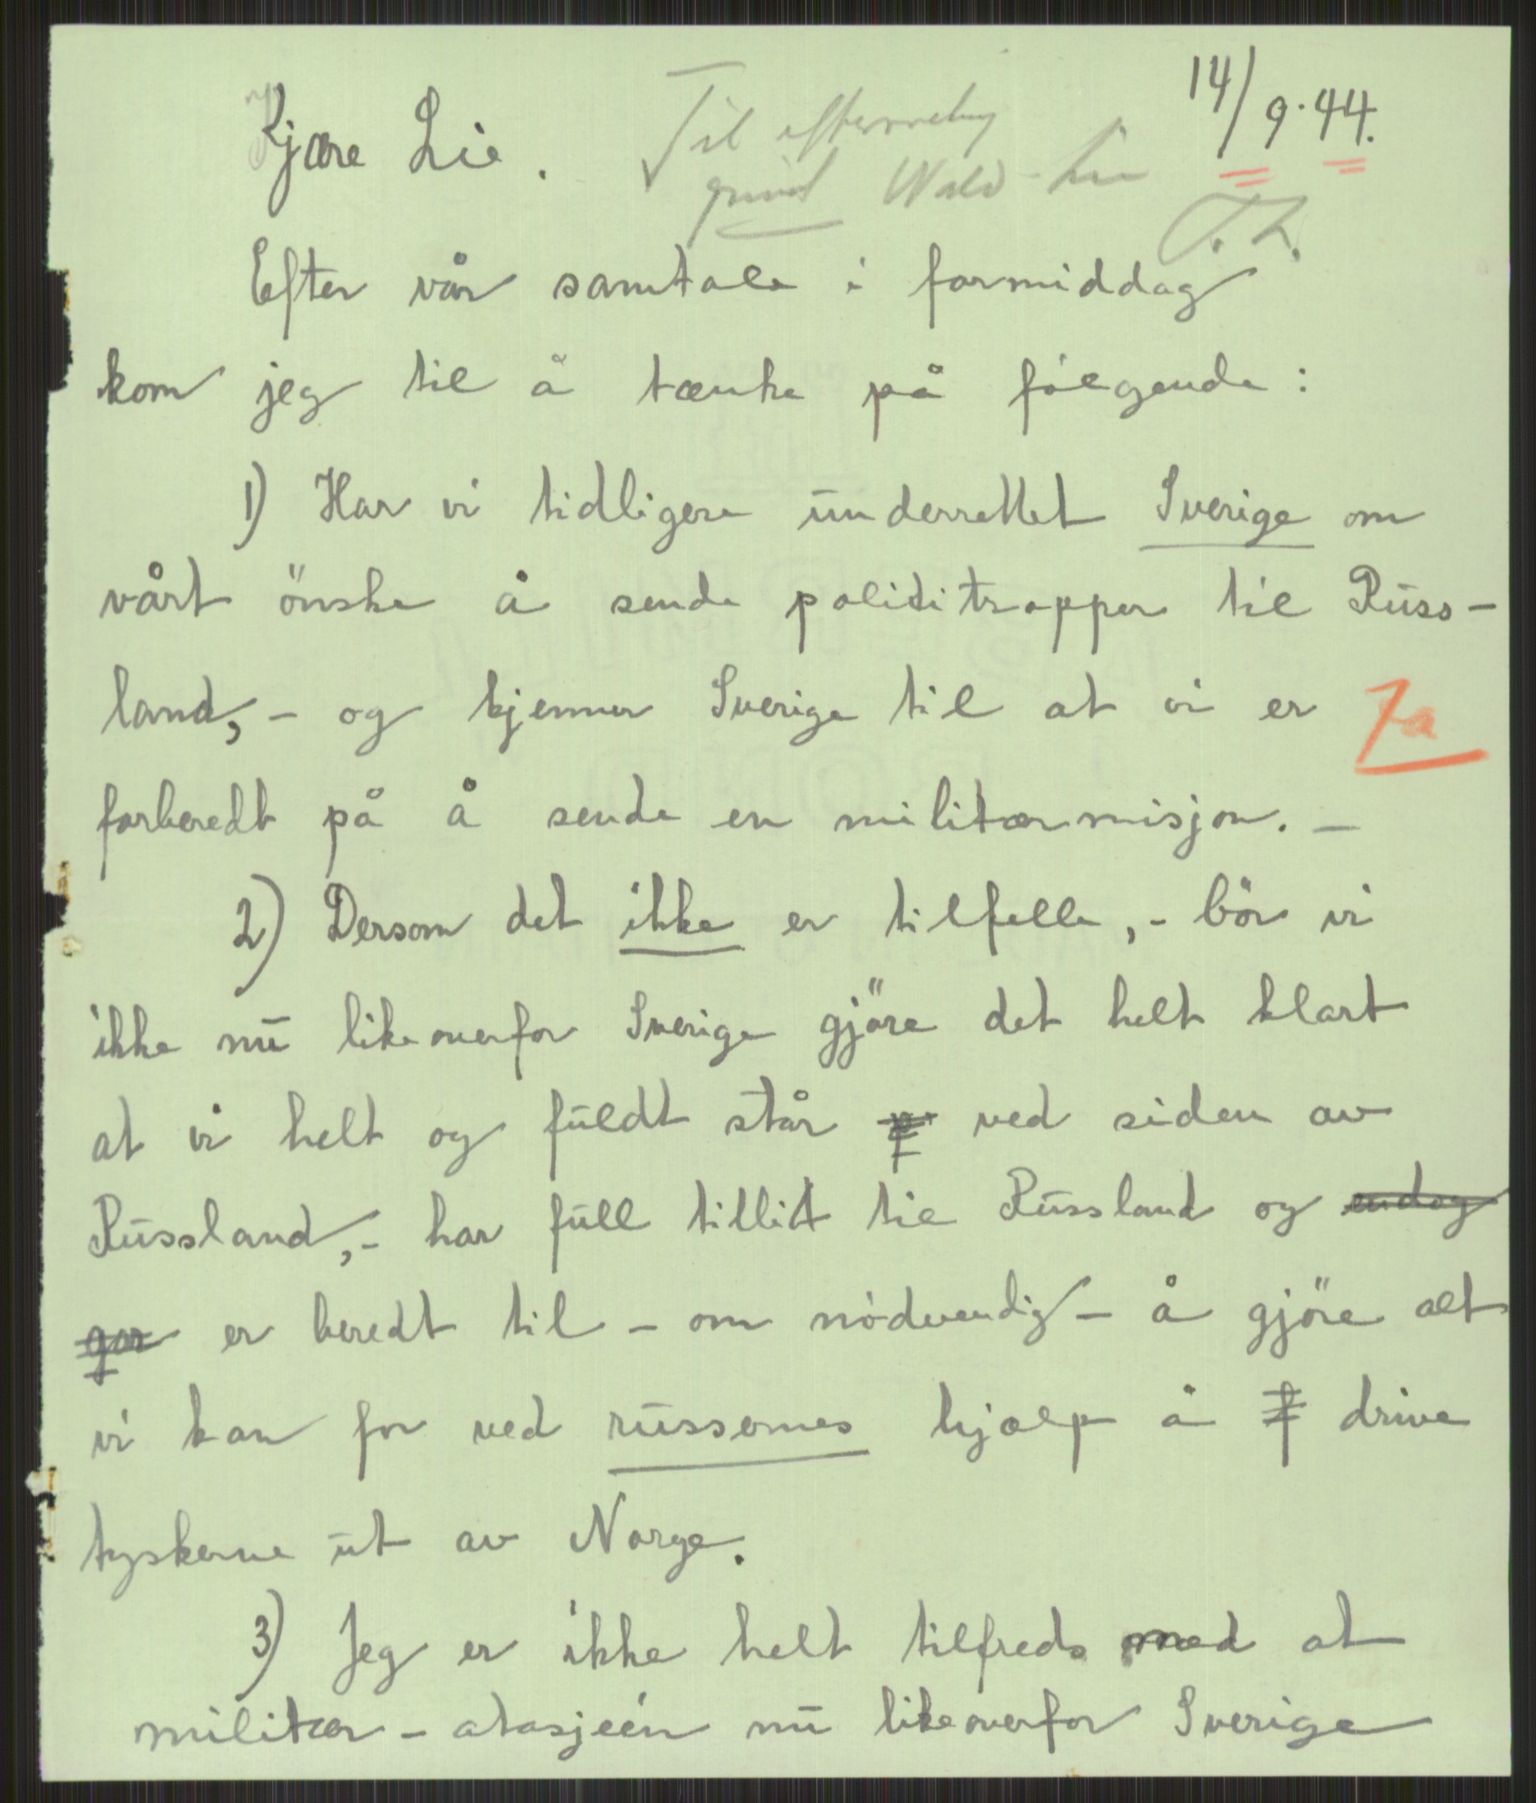 14/9.44.
Kjære Lie.
Til
T.L.
Efter vår samtale i formiddag
kom jeg til å tænke på fólgende:
1) Har vi tidligere underrettet Sverige om
vårt önske å sende polititropper til Russ-
land, - og kjenner Sverige til at vi er
Ja
forberedt på å sende en militærmisjon. -
2) Dersom det ikke er tilfelle, - bör vi
ikke nu likeoverfor Sverige gjöre det helt klart
at vi helt og fuldt står ved siden av
Russland, - har full tillit til Russland og endog
gar er beredt til - om nódvendig - å gjöre alt
vi kan for ved russernes hjælp å f drive
tyskerne ut av Norge.
3) Jeg er ikke helt tilfreds med at
militær-atasjeén nu likeoverfor Sverige